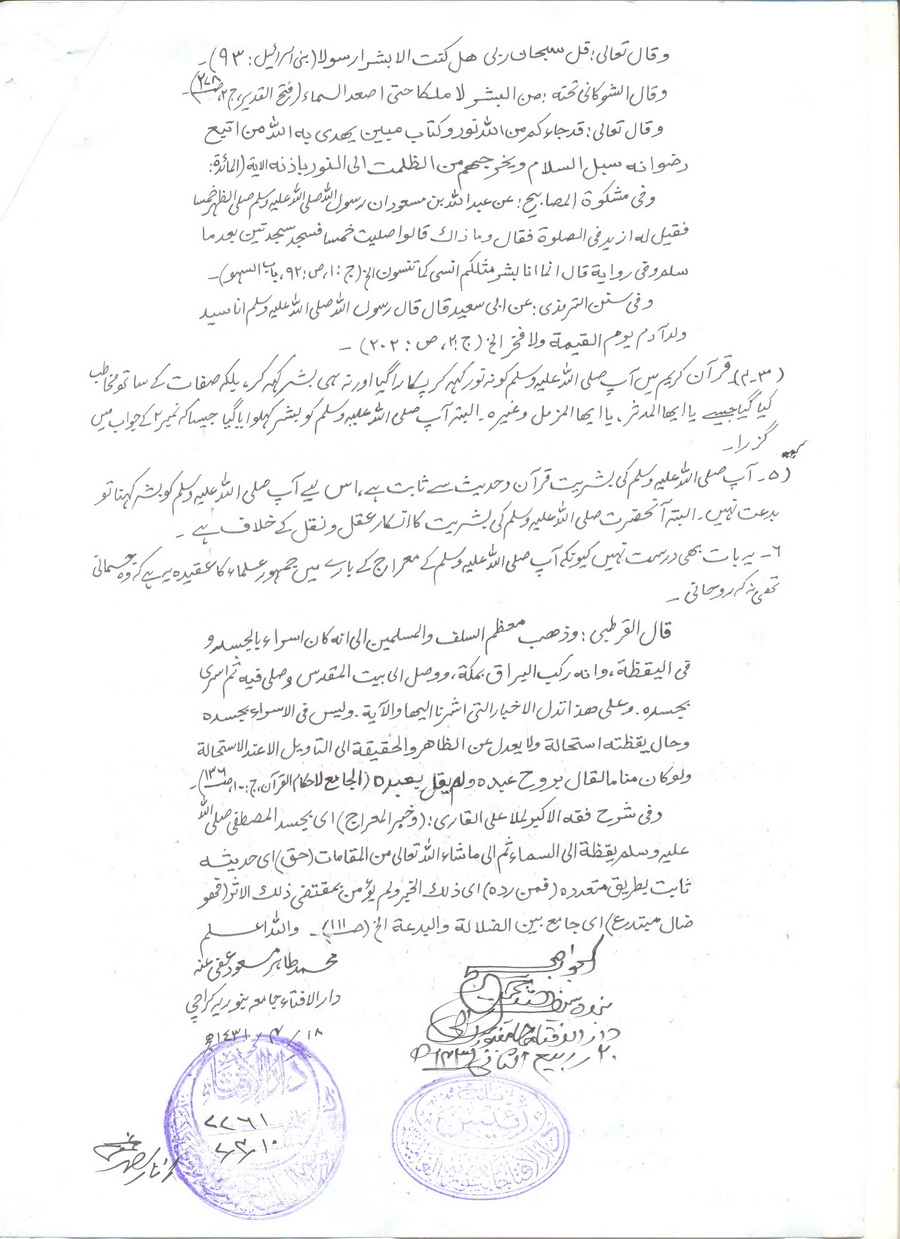 وقال تعالی: قل سبحان ربی هل کنت الا بشرا رسولا (بنی اسرائیل: ۹۳)۔
وقال الشوکانی تحته: من البشر لا ملکا حتی اصعد السماء (فتح القدیر، ج۳،
وقال تعالی: قد جاءکم من الله نور وکتاب مبین یهدی به الله من اتبع
رضوانه سبل السلام ویخرجهم من الظلمت الی النور باذنه الایة (المائدة:
وفی مشکوة المصابیح: عن عبد الله بن مسعود ان رسول الله صلی الله علیه وسلم صلی الظهر خمسا
فقیل له ازید فی الصلوة فقال وما ذاک قالوا صلیت خمسا فسجد سجدتین بعد ما
سلم وفی روایة قال انما انا بشر مثلکم انسی کما تنسون الخ (ج: ۱، ص: ۹۲، باب السهو)۔
وفی سنن الترمذی: عن ابی سعید قال قال رسول الله صلی الله علیه وسلم انا سید
ولد آدم یوم القیمة ولا فخر الخ (ج ۲، ص: ۲۰۲)۔
(۳۔۴) قرآن کریم میں آپ صلی اللہ علیہ وسلم کو نہ نور کہہ کر پکارا گیا اور نہ ہی بشر کہہ کر، بلکہ صفات کے ساتھ مخاطب
کیا گیا جیسے یا ایھا المدثر، یا ایھا المزمل وغیرہ۔ البتہ آپ صلی اللہ علیہ وسلم کو بشر کہلوایا گیا جیسا کہ نمبر ۲ کے جواب میں
گزرا۔
(۵۔ آپ صلی اللہ علیہ وسلم کی بشریت قرآن وحدیث سے ثابت ہے، اس لیے آپ صلی اللہ علیہ وسلم کو بشر کہنا تو
بدعت نہیں۔ البتہ آنحضرت صلی اللہ علیہ وسلم کی بشریت کا انکار عقل و نقل کے خلاف ہے۔
۶۔ یہ بات بھی درست نہیں کیونکہ آپ صلی اللہ علیہ وسلم کے معراج کے بارے میں جمہور علماء کا عقیدہ یہ ہے کہ وہ جسمانی
تھی نہ کہ روحانی۔
قال القرطبی: وذهب معظم السلف والمسلمین الی انه کان اسراء بالجسد و
فی الیقظة، وانه رکب البراق بمکة، ووصل الی بیت المقدس وصلی فیه ثم اسری
بجسده۔ وعلی هذا تدل الاخبار التی اشرنا الیها والآیة۔ ولیس فی الاسراء بجسده
وحال یقظته استحالة ولا یعدل عن الظاهر والحقیقة الی التاویل الا عند الاستحالة
ولو کان مناما لقال بروح عبده ولم یقل بعبده (الجامع لاحکام القرآن، ج: ۱۰، ص ۱۳۶)۔
وفی شرح فقه الاکبر لملا علی القاری: (وخبر المعراج) ای بجسد المصطفی صلی الله
علیه وسلم یقظة الی السماء ثم الی ما شاء الله تعالی من المقامات (حق) ای حدیثه
ثابت بطریق متعدده (فمن رده) ای ذلک الخبر ولم یؤمن بمقتضی ذلک الاثر (فهو
ضال مبتدع) ای جامع بین الضلالة والبدعة الخ (ص ۱۱۱)۔ والله اعلم
محمد طاہر مسعود عفی عنہ
دار الافتاء جامعہ بنوریہ کراچی
۱۸/۴/۱۴۳۱ھ
دار الافتاء جامعہ بنوریہ
۲۰ ربیع الثانی ۱۴۳۱ھ
دار الافتاء
رئیس